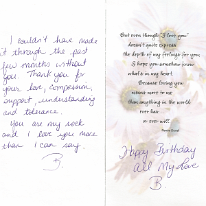 I couldn't have made
it through the past
few months without
you. Thank you for
your love, compassion,
support, understanding
and tolerance.
You are my rock
and I love you more
than I can say.
B
But even though "I love you"
doesn't quite express
the depth of my feelings for you,
I hope you somehow know
what's in my heart
Because loving you
means more to me
than anything in the world
ever has
or ever will.
Happy Birthday
All My Love
B